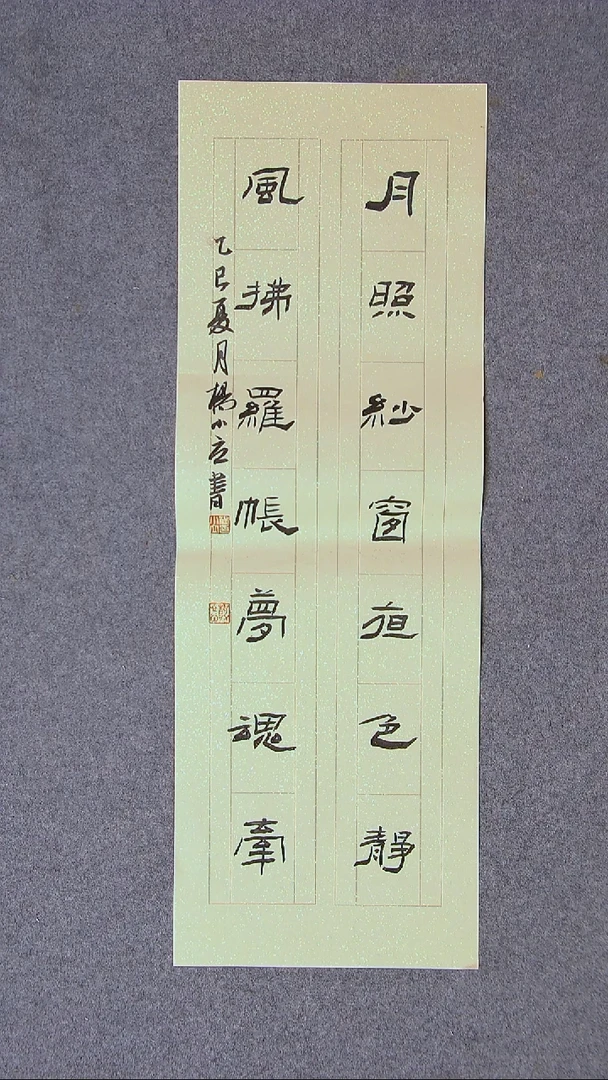 月照紗窗夜色静
風拂羅帳夢魂牽
乙巳夏月楊小立書